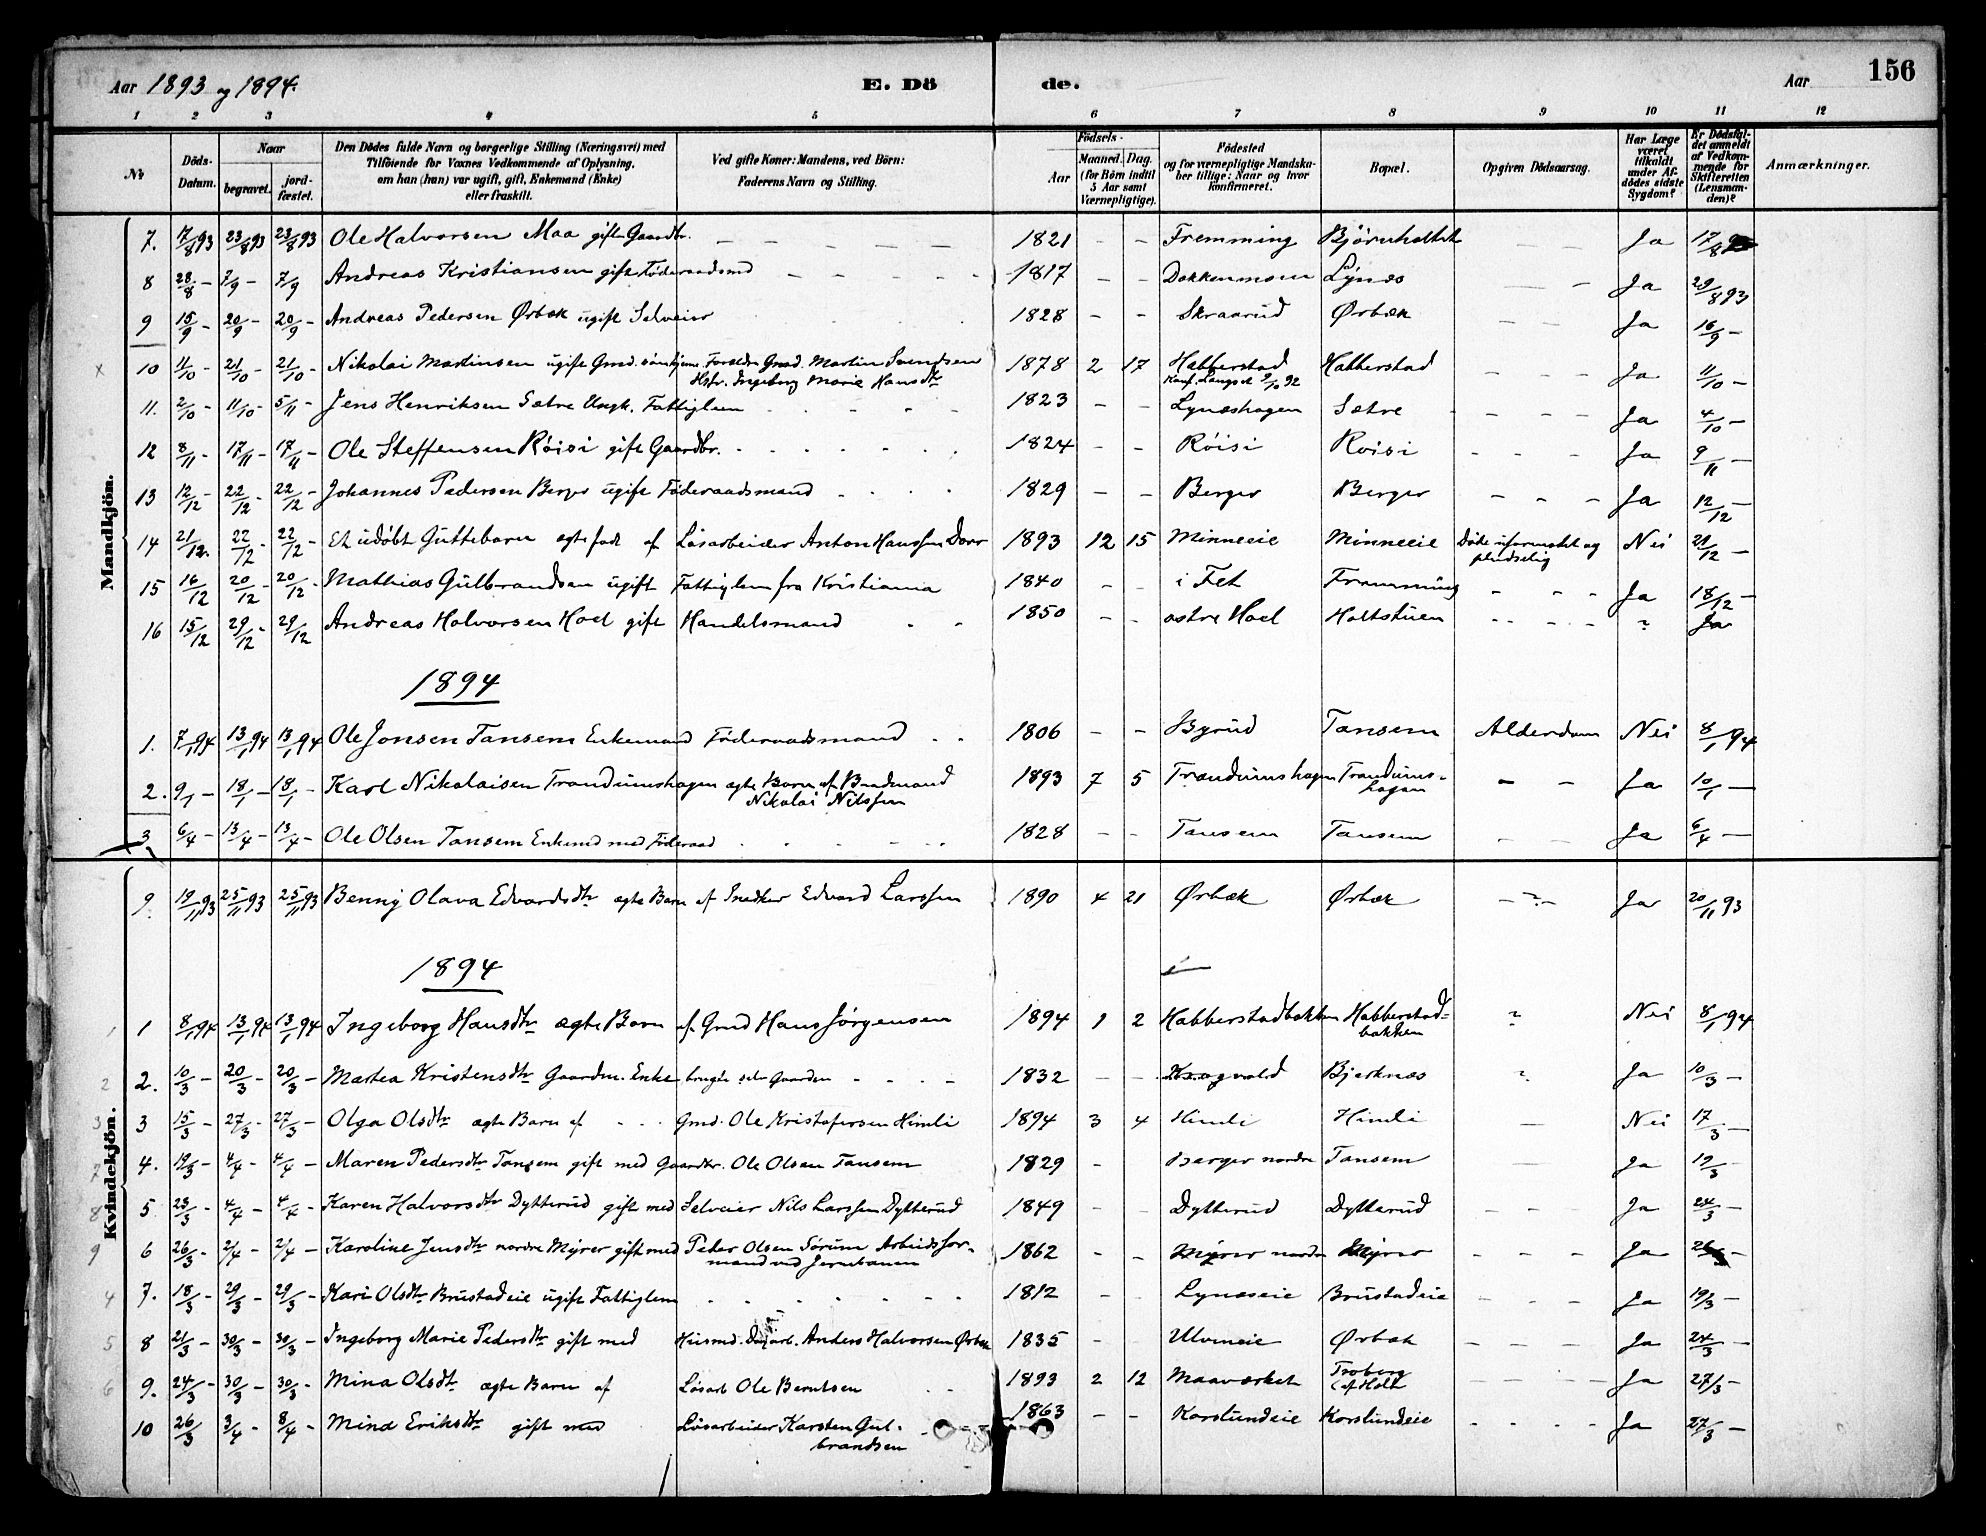 Aar 1893 og 1894. E. Dö de. Aar 156
1 2 3 4 5 6 7 8 9 10 11 12
№ Döds-Datum. Naar begravet. jord-fæstet. Den Dödes fulde Navn og borgerlige Stilling (Næringsvei) med Tilföiende for Voxnes Vedkommende af Oplysning, om han (hun) var ugift, gift, Enkemand (Enke) eller fraskilt. Ved gifte Koner: Mandens, ved Börn: Faderens Navn og Stilling. Födsels- Aar Maaned. Dag. (for Börn indtil 5 Aar samt Værnepligtige). Födested og for værnepligtige Mandskaber tillige: Naar og hvor konfirmeret. Bopæl. Opgiven Dödsaarsag. Har Læge været tilkaldt under Afdödes sidste Sygdom? Er Dödsfaldet anmeldt af Vedkommende for Skifteretten (Lensmanden)? Anmærkninger.
Mandkjön.
7. 17/8 93 23/8 93 23/8 93 Ole Halvorsen Maa gift Gaardbr. 1821 – – Fremming Björnholtet Ja 17/8
8 28/8 – 7/9 – 7/9 Andreas Kristiansen gift Föderaadsmd 1817 – – Dokkenmoen Lynæs – Ja 29/8 93
9 15/9 – 20/9 – 20/9 – Andreas Pedersen Ørbæk ugift Selveier 1828 – – Skraarud Ørbæk – – Ja 16/9 –
10 11/10 – 21/10 – 21/10 – Nikolai Martinsen ugift Gmd. Forældre Gmd. Martin Svendsen 1878 2 17 Habberstad Habberstad – – Ja 11/10 –
Hstr. Ingeborg Marie Hansdtr Konf. 2/10 92
11. 2/10 – 11/10 – 5/11 – Jens Henriksen Sætre Ungk. Fattiglem 1823 – – Lynæshagen Sætre – – Ja 4/10 –
12 8/11 – 17/11 – 17/11 – Ole Steffensen Röisi gift Gaardbr. 1824 – – Röisi Roisi – – Ja 9/11 –
13 12/12 – 22/12 – 22/12 – Johannes Pedersen Berger ugift Föderaadsmand 1829 – – Berger Berger – – Ja 12/12 –
14 21/12. 22/12 – 22/12 – Et udöbt Guttebarn ægte födt af Lösarbeider Anton Hanssen Dorr 1893 12 15 Minneeie Minneeie Döde uformodet og Nei 21/12 –
pludselig
15 16/12 20/12 – 20/12 – Mathias Gulbrandsen ugift Fattiglem fra Kristiania 1840 – – i Fet Fremming – – Ja 18/12 –
16 15/12 29/12 – 29/12 Andreas Halvorsen Hoel gift Handelsmand 1850 – – østre Hoel Holtstuen – – ? Ja
1894
1. 7/1 94 13/1 94 13/1 94 Ole Jonsen Tansem Enkemand Föderaadsmand 1806 – – Byrud Tansem Alderdom Nei 8/1 94
2. 9/1 – 18/1 – 18/1 – Karl Nikolaisen Trandumshagen ægte Barn af Brudmand 1893 7 5 Trandumshagen Trandums-
Nikolai Nilssen hagen – – Ja 10/1 –
3 6/4 – 13/4 – 13/4 – Ole Olsen Tansem Enkemd med Föderaad 1828 – – Tansem Tansem – – Ja 6/4 –
Kvindekjön.
9. 19/11 93 25/11 93 25/11 93 Benny Olava Edvardsdtr ægte Barn af Snedker Edvard Larssen 1890 4 21 Ørbæk Ørbæk – ? – Ja 20/11 93
1894
1 1 8/1 94 13/1 94 13/1 94 Ingeborg Hansdtr ægte Barn af Gmd Hans Jörgensen 1894 1 2 Habberstadbakken Habberstad- ? Nei 8/1 94
bakken
2 2. 10/3 – 20/3 – 20/3 – Martea Kristensdtr Gaardm. Enke brugte selv Gaarden 1832 – – Kragvold Bjerknæs ? Ja 10/3 –
3 3 15/3 – 27/3 – 27/3 – Olga Olsdtr ægte Barn af Gmd. Ole Kristofersen Himli 1894 3 4 Himli Himli – Nei 17/3 –
7 4. 19/3 – 4/4 – 4/4 – Maren Pedersdtr Tansem gift med Gaardbr. Ole Olsen Tansem 1829 – Berger nordre Tansem – Ja 19/3 –
8 5 23/3 – 4/4 – 4/4 – Karen Halvorsdtr Dytterud gift med Selveier Nils Larssen Dytterud 1849 – – Dytterud Dytterud – – – Ja 24/3 –
9 6 26/3 – 2/4 – 2/4 – Karoline Jensdtr nordre Myrer gift med Peter Olsen Sörum Arbeidsfor- 1862 – – Myrer nordre Myrer – – – Ja 26/3 –
mand ved Jernbanen
4 7. 18/3 – 29/3 – 29/3 – Kari Olsdtr Brustadeie ugift Fattiglem 1812 – – Lynæseie Brustadeie – – Ja 19/3 –
5 8 21/3 – 30/3 – 30/3 – Ingeborg Marie Pedersdtr gift med Husmd. Anders Halvorsen Ørbæk 1835 – – Ulvineie Ørbæk – – Ja 24/3 –
6 9. 24/3 – 30/3 – 30/3 – Mina Olsdtr ægte Barn af Lösarb Ole Berntsen 1893 2 12 Maaværket Troberg – – Ja 27/3 –
af Holt
10 26/3 3/4 – 8/4 – Mina Eriksdtr gift med Lösarbeider Karsten Gul- 1863 – – Korslundeie Korslundeie – – Ja 27/3 –
brandsen